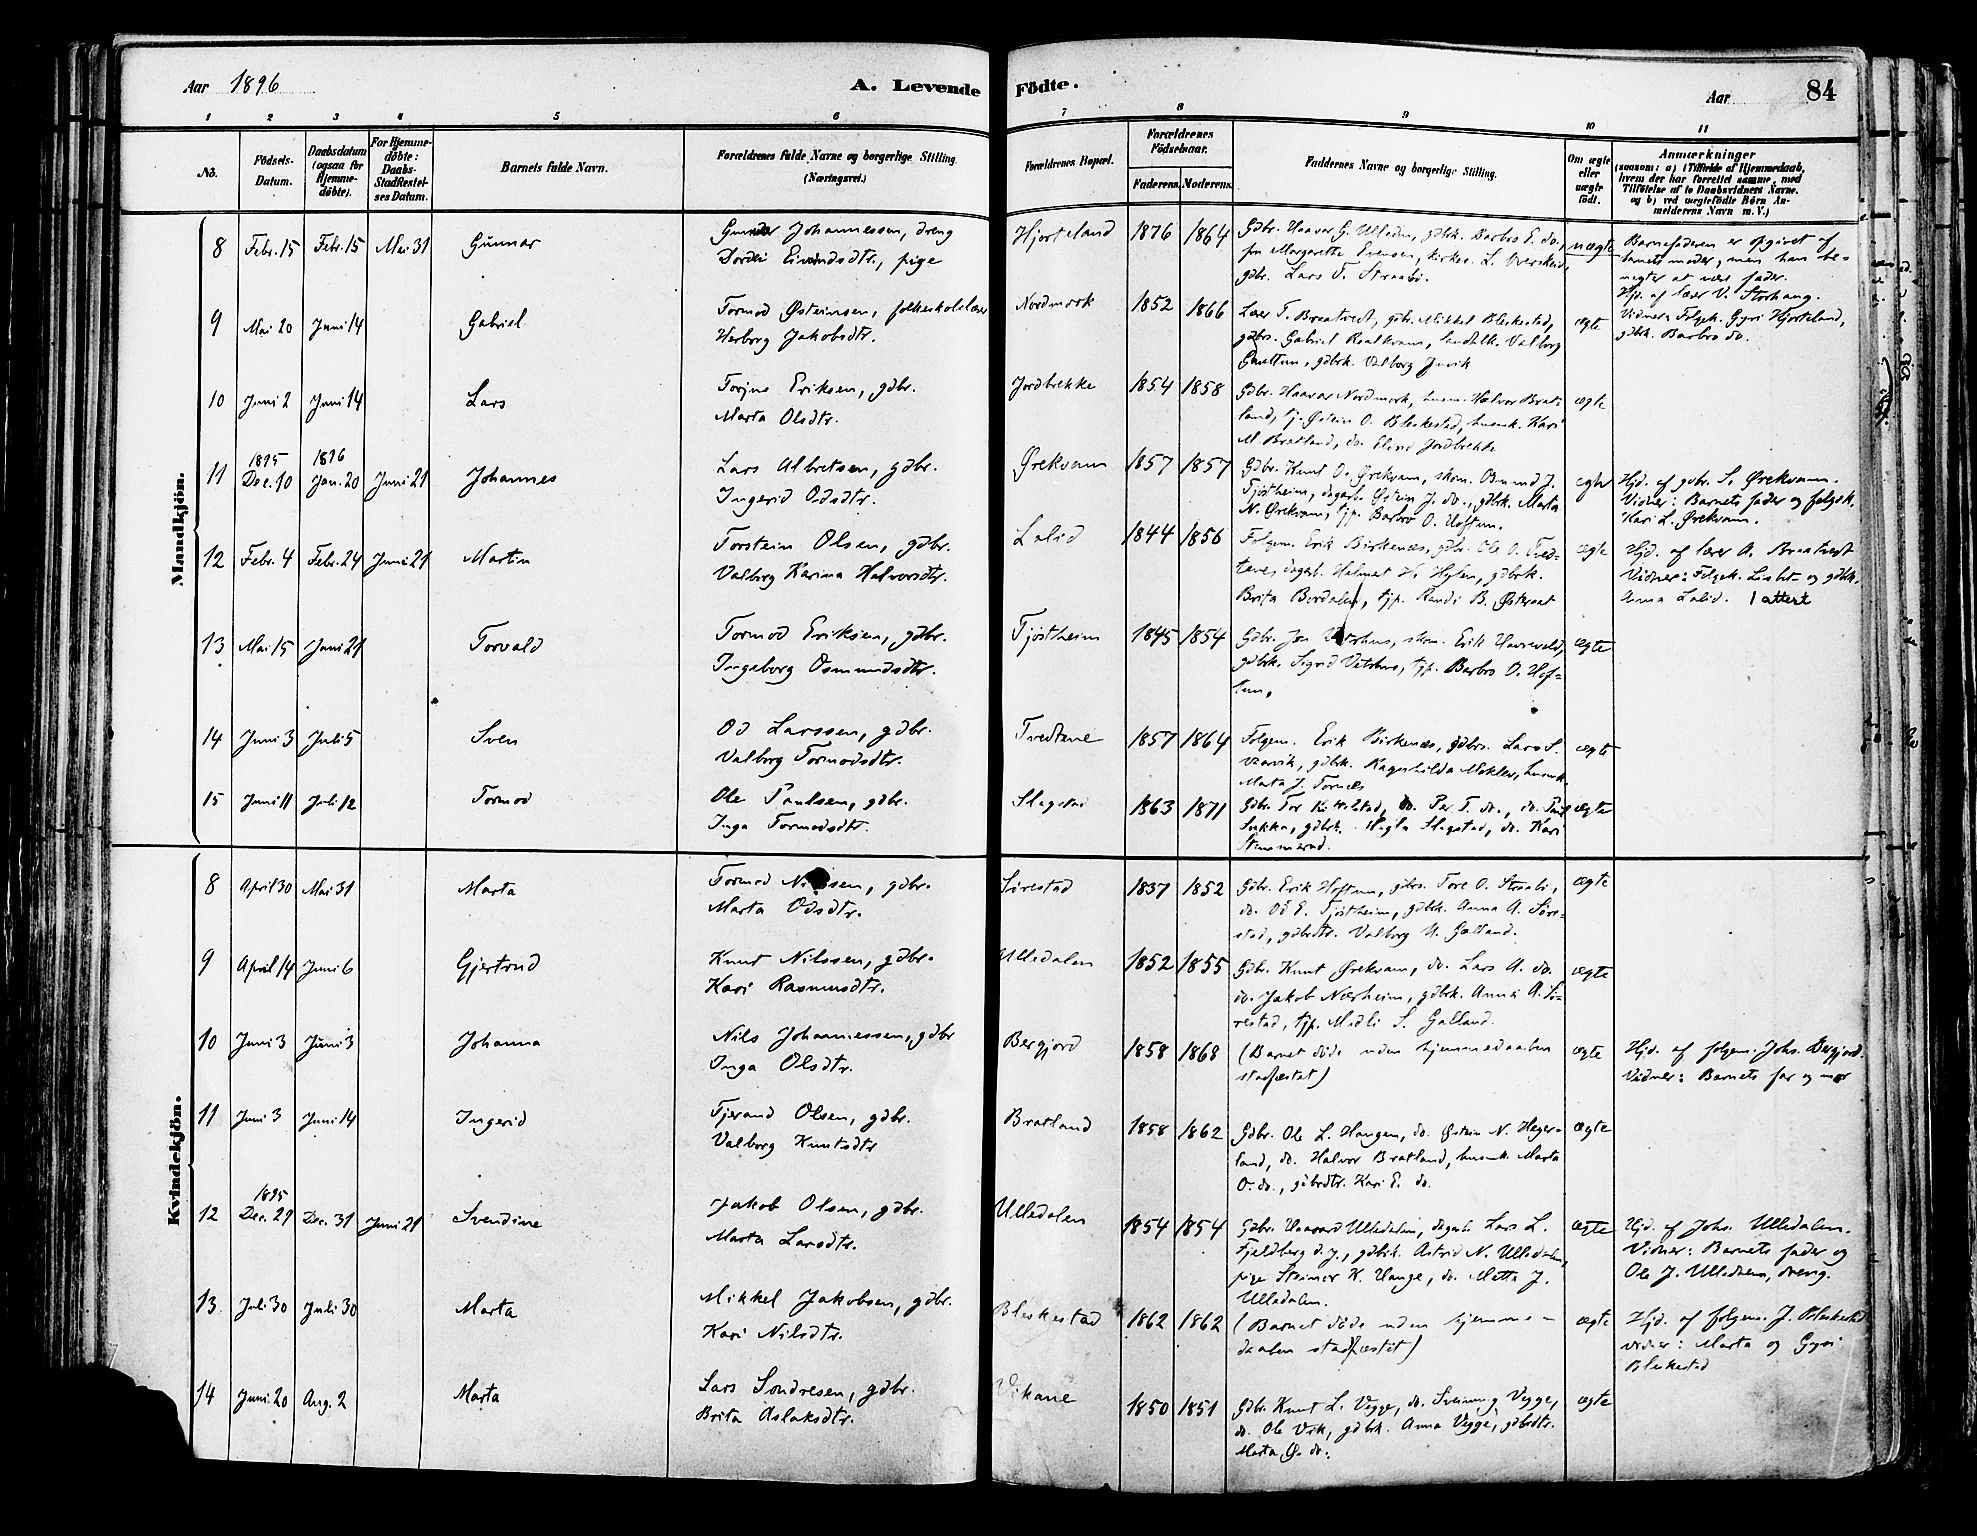 Aar 1896
A. Levende Födte.
Aar
84
1 2 3 4 5 6 7 8 9 10 11
No.
Födsels-Datum.
Daabsdatum (ogsaa for Hjemme-döbte).
For Hjemme-döbte: Daabs-Stadfestel-ses Datum.
Barnets fulde Navn.
Forældrenes fulde Navne og borgerlige Stilling. (Næringsvei.)
Forældrenes Bopæl.
Forældrenes Födselsaar.
Faderens. Moderens.
Faddernes Navne og borgerlige Stilling.
Om ægte eller uægte födt.
Anmærkninger
(saasom: a) i Tilfælde af Hjemmedaab,
hvem der har forrettet samme, med
Tilföielse af to Daabsvidners Navne.
og b) ved uægtefödte Börn An-
melderens Navn m. V.)
Mandkjön.
8 Febr. 15 Febr. 15 Mai 31 Gunnar
Gunnar Johannessen, dreng
Dordei Eivindsdtr., pige
Hjorteland 1876 1864
Gdbr. Haavar G. Ulledn, gdbrk. Barbro E. do,
fru Margarethe Evensen, kirkes. L. Overskeid,
gdbr. Lars T. Straabö.
uægte
Barnefaderen er opgivet af
barnets moder, men han be-
negter at være fader.
Hjd. af lærer V. Storhaug.
Vidner: Folgek. Gyri Hjorteland,
gdbrk. Barbro do.
9 Mai 20 Juni 14 Gabriel
Tormod Østeinsen, folkeskolelærer
Herborg Jakobsdtr.
Nordmork 1852 1866
Lærer T. Braatveit, gdbr. Mikkel Bleskestad,
gdbrs. Gabriel Roalkvam, landhlk. Valborg
gdbrk. Valborg Juvik
ægte
10 Juni 2 Juni 14 Lars
Torjus Eriksen, gdbr.
Marta Olsdtr.
Jordbrekke 1854 1858
Gdbr. Haavar Nordmork, husm. Halvor Brat-
land, tj. Østein O. Bleskestad, husmk. Kari
M. Bratland, do. Eline Jordbrekke
ægte
11 1895 Dec. 10 1896 Jan. 20 Juni 21 Johannes
Lars Albretsen, gdbr.
Ingerid Odsdtr.
Ørekvam 1857 1857
Gdbr. Knut O. Ørekvam, skom. Osmund J.
Tjöstheim, dagarb. Østein J. do., gdbrk. Marta
N. Ørekvam, tjp. Barbro O. Hoftun.
ægte
Hjd. af gdbr. S. Ørekvam.
Vidner: Barnets fader og folgek.
Kari L. Ørekvam.
12 Febr. 4 Febr. 24 Juni 21 Martin
Torstein Olsen, gdbr.
Valborg Karina Halvorsdtr.
Lalid 1844 1856
Folgem. Erik Birkenæs, gdbr. Ole O. Tved-
tene, dagarb. Helmet H. Hylen, gdbrk.
Brita Bordalen, tjp. Randi B. Østeraat
ægte
Hjd. af lærer A. Braatveit
Vidner: Folgek. Lisbet og gdbrk.
Anna Lalid. 1 attest
13 Mai 15 Juni 21 Torvald
Tormod Eriksen, gdbr.
Ingeborg Osmundsdtr.
Tjöstheim 1845 1854
Gdbr. Jon Vetrhus, skom. Erik Havrevold,
gdbrk. Sigrid Vetrhus, tjp. Barbro O. Hof-
tun.
ægte
14 Juni 3 Juli 5 Sven
Od Larssen, gdbr.
Valborg Tormodsdtr.
Tvedtene 1857 1864
Folgem. Erik Birkenæs, gdbrs. Lars S.
Vaarvik, gdbrk. Ragnhilda Mokleiv, husmk.
Marta J. Tornæs
ægte
15 Juni 11 Juli 12 Tormod
Ole Paulsen, gdbr.
Inga Tormodsdtr.
Slagstad 1863 1871
Gdbr. Tor Ketilstad, do. Per T. do., do. Paul
Sukka, gdbrk. Helga Slagstad, do. Kari
ægte
Kvindekjön.
8 April 30 Mai 31 Marta
Tormod Nilssen, gdbr.
Marta Odsdtr.
Sørestad 1837 1852
Gdbr. Erik Hoftun, gdbrs. Tore O. Straabö,
do. Od E. Tjöstheim, gdbrk. Anna A. Søre-
stad, gdbrdtr. Valborg N. Galland.
ægte
9 April 14 Juni 6 Gjertrud
Knut Nilssen, gdbr.
Kari Rasmusdtr.
Ulledalen 1852 1855
Gdbr. Knut Ørekvam, do. Lars A. do.
do. Jakob Nærheim, gdbrk. Anna A. Sø-
restad, tjp. Madli S. Galland.
ægte
10 Juni 3 Juni 3 Johanna
Nils Johannessen, gdbr
Inga Olsdtr.
Bergjord 1858 1868
(Barnet döde uden hjemmedaaben
stadfæstet)
ægte
Hjd. af folgem. Johs. Bergjord.
Vidner: Barnets far og mor
11 Juni 3 Juni 14 Ingerid
Tjerand Olsen, gdbr.
Valborg Knutsdtr
Bratland 1858 1862
Gdbr. Ole L. Haugen, do. Østein N. Heger-
land, do. Halvor Bratland, husmk. Marta
O. do., gdbrdtr. Kari E. do.
ægte
12 1895 Dec. 29 Dec. 31 Juni 21 Svendine
Jakob Olsen, gdbr.
Marta Larsdtr.
Ulledalen 1854 1854
Gdbr. Haavard Ulledalen, dagarb. Lars L.
Fjeldberg d. y., gdbrk. Astrid N. Ulledalen,
pige Steinvor K. Hauge, do. Metta J.
Ulledalen.
ægte
Hjd. af Johs. Ulledalen.
Vidner: Barnets fader og
Ole J. Ulledalen, dreng.
13 Juli 30 Juli 30 Marta
Mikkel Jakobsen, gdbr.
Kari Nilsdtr.
Bleskestad 1862 1862
(Barnet döde uden hjemme-
daaben stadfæstet)
ægte
Hjd. af folgem. J. Bleskestad
vidner: Marta og Gyri
Bleskestad
14 Juni 20 Aug. 2 Marta
Lars Sondresen, gdbr.
Brita Aslaksdtr.
Vikane 1850 1851
Gdbr. Knut L. Vegge, do. Sveinung Vegge,
do. Ole Vik, gdbrk. Anna Vegge, gdbrdtr.
Marta Ø. do.
ægte